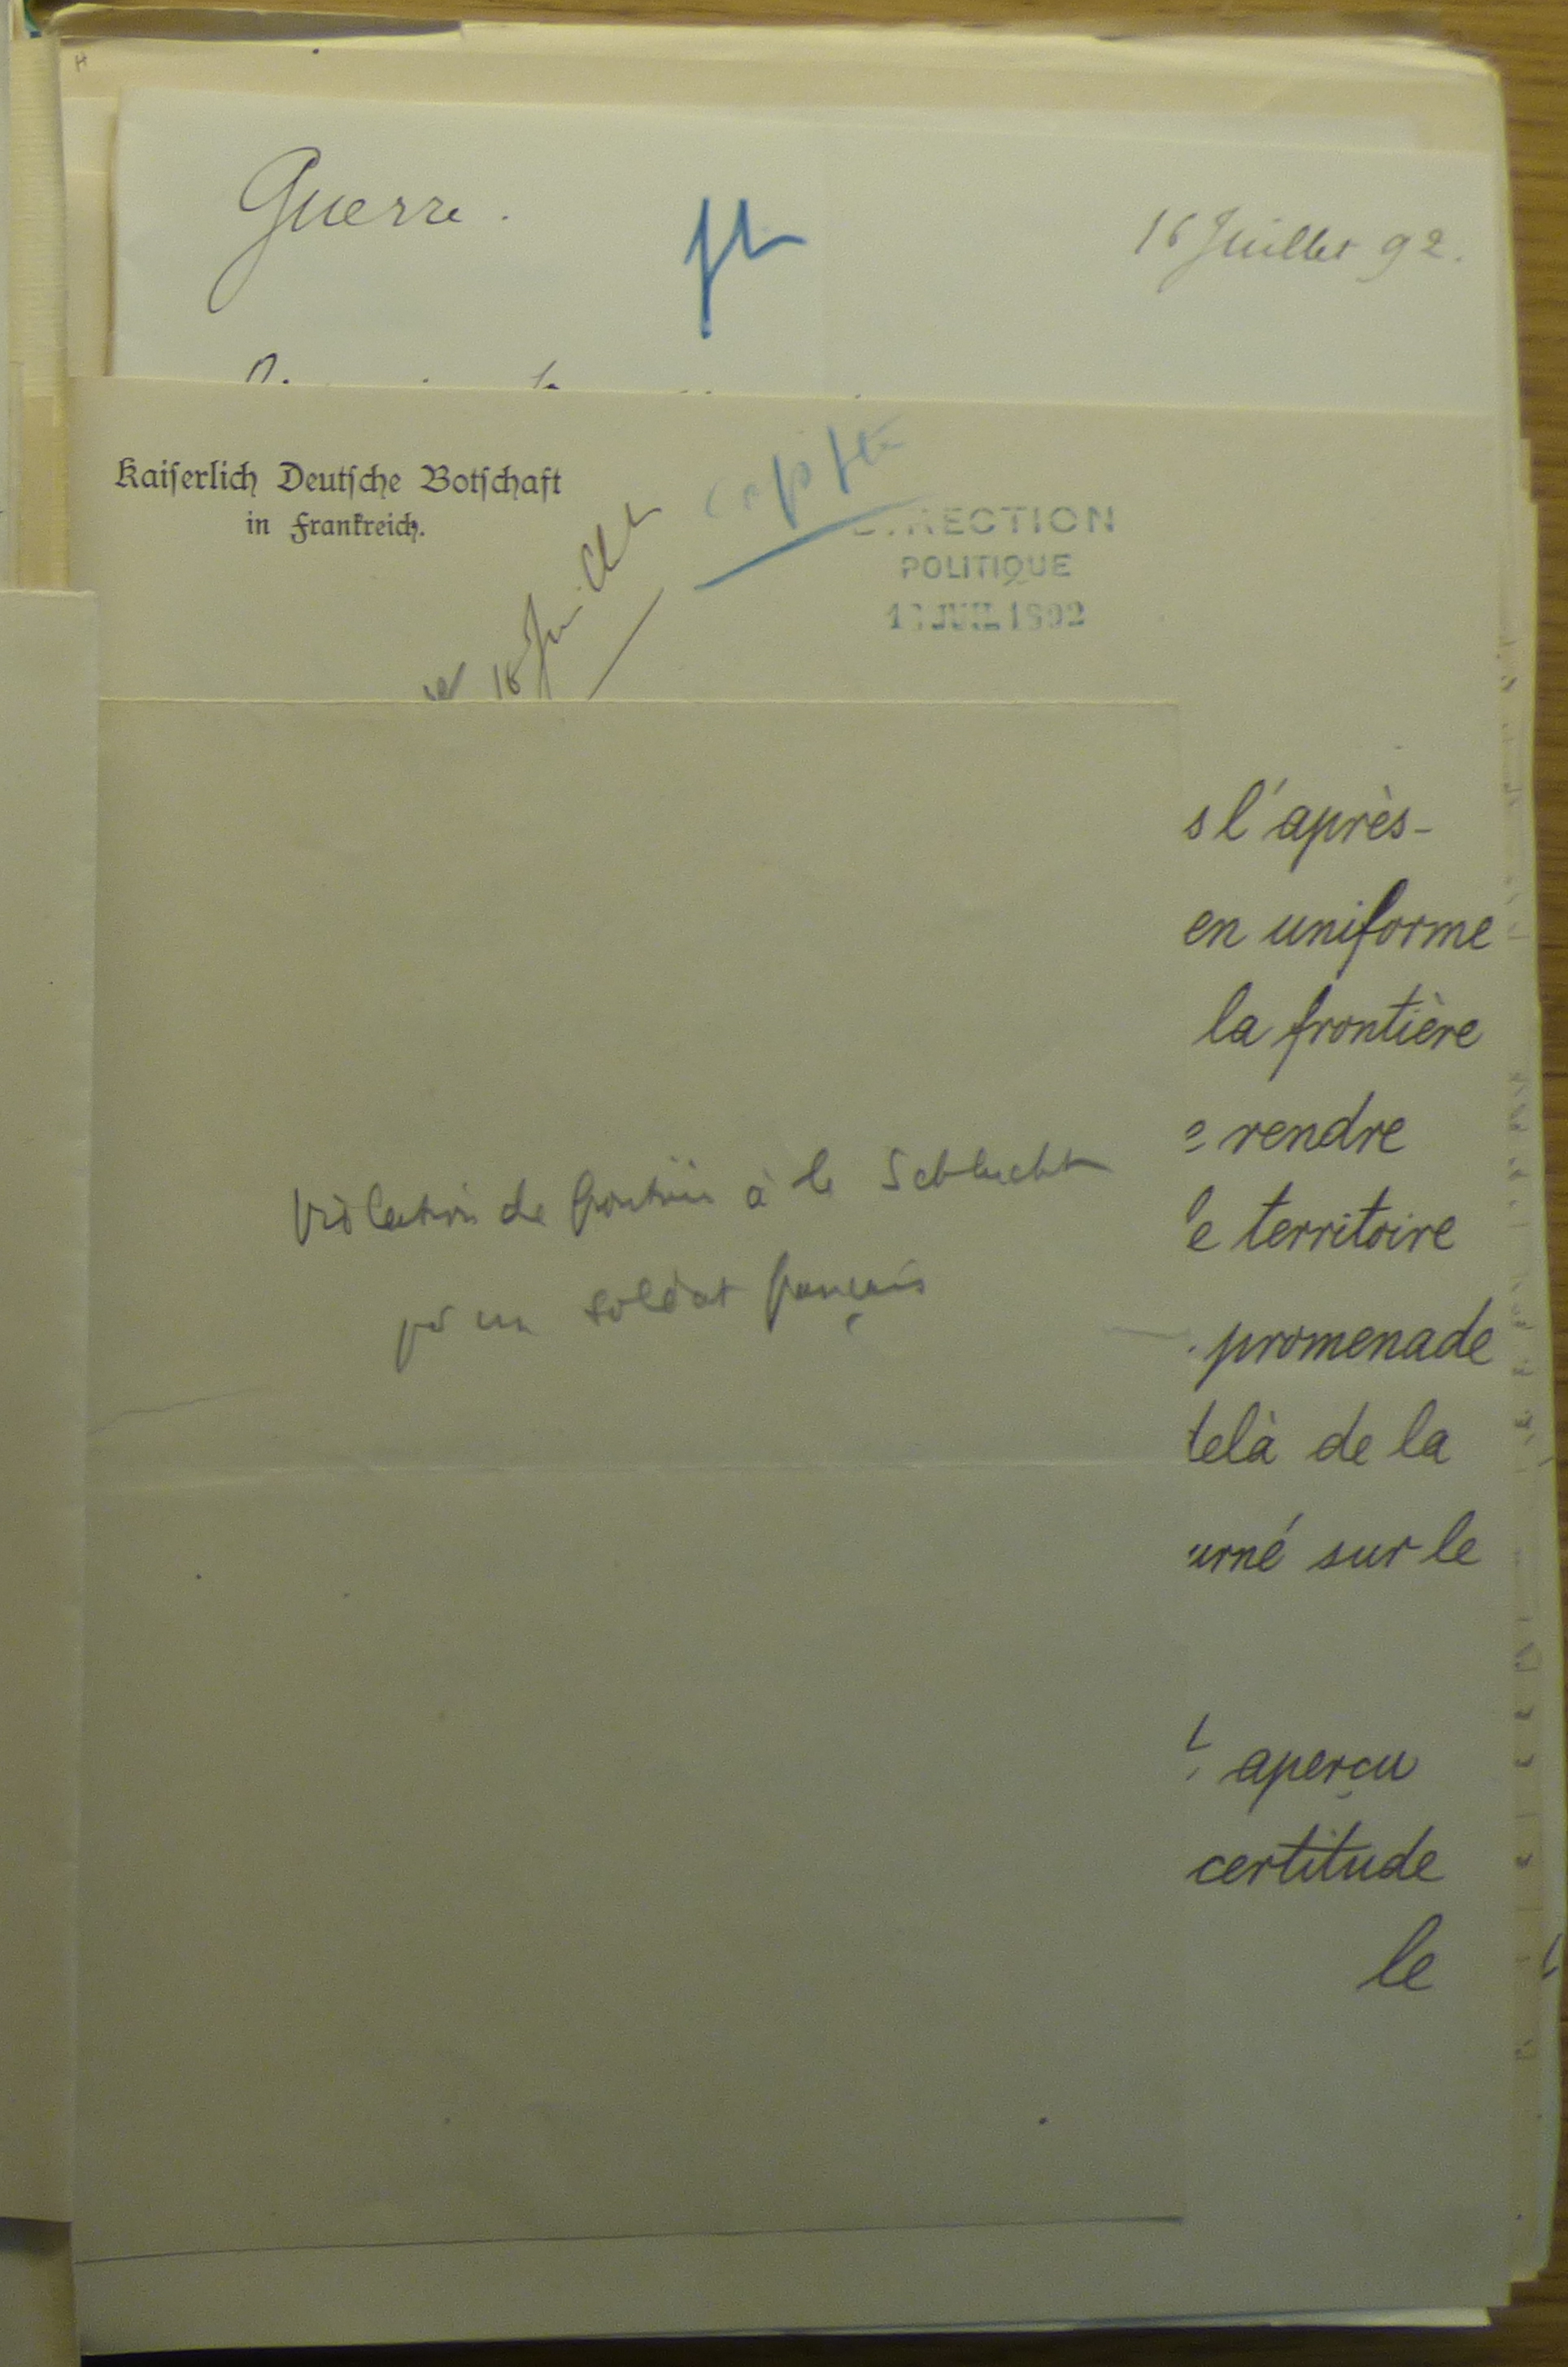 Guerre.
16 Juillet 92.
Kaiserlich Deutsche Botschaft
in Frankreich.
DIRECTION
POLITIQUE
JUIL 1892
18 Juillet
s l'après-
en uniforme
la frontière
rendre
e territoire
Violation de frontière à la Schlucht
par un soldat français
promenade
delà de la
urné sur le
aperçu
certitude
le